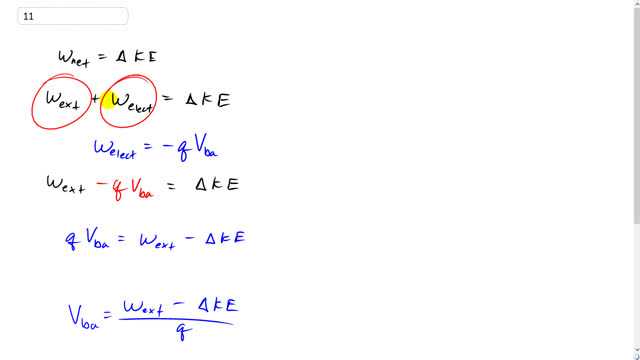 11
W_net = ΔKE
W_ext + W_elect = ΔKE
W_elect = -q V_ba
W_ext - q V_ba = ΔKE
q V_ba = W_ext - ΔKE
V_ba = (W_ext - ΔKE) / q